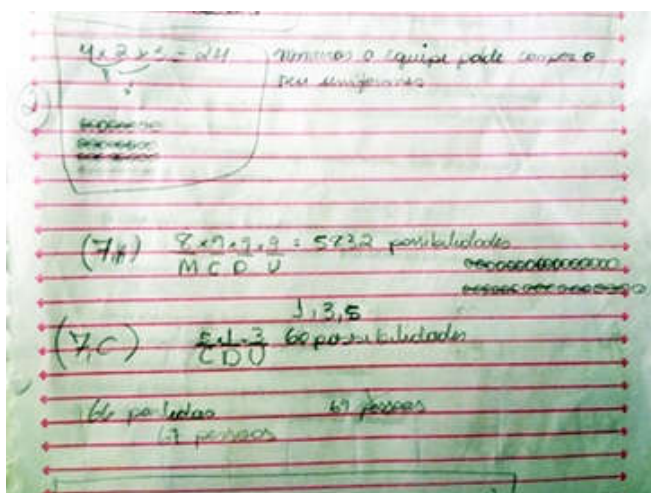 4 x 2 x 3 = 24 maneiras a equipe pode compor o
seu uniforme
(7,A) 8 x 9 x 9 x 9 = 5832 possibilidades
M C D U
1, 3, 5
(7,C) 5 x 4 x 3 60 possibilidades
C D U
66 partidas 69 pessoas
67 pessoas